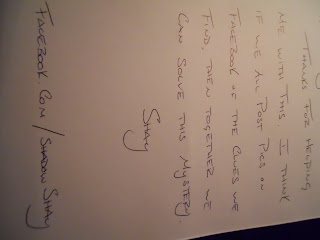 THANKS FOR HELPING
ME WITH THIS I THINK
IF WE ALL POST PICS ON
FACEBOOK OF THE CLUES WE
FIND, THEN TOGETHER WE
CAN SOLVE THIS MYSTERY.
SHAY
FACEBOOK.COM/SHADOWSHAY